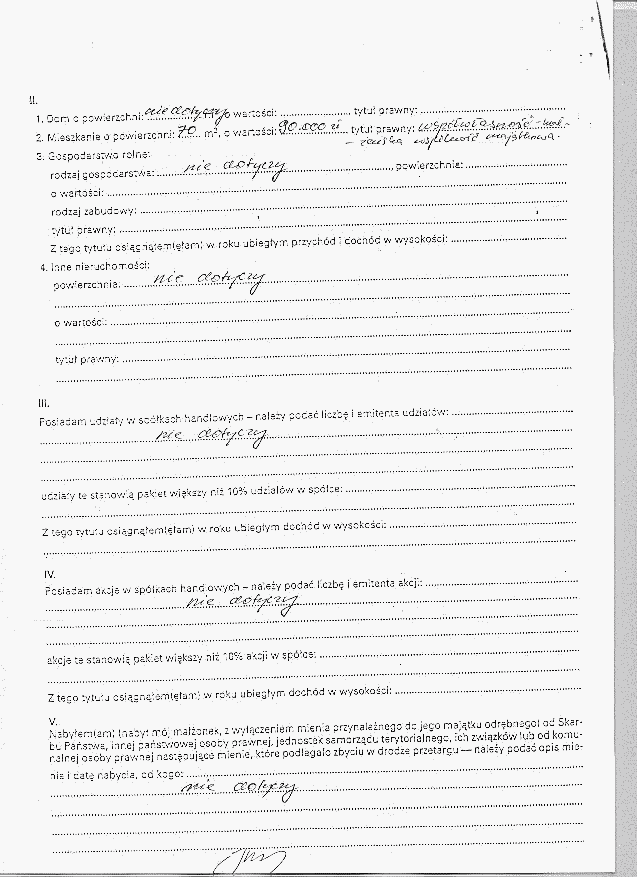 II.
1. Dom o powierzchni: nie dotyczy o wartości: tytuł prawny:
2. Mieszkanie o powierzchni: 70 m², o wartości: 90.000 zł tytuł prawny: współwłasność - mał-
- żeńska wspólność majątkowa.
3. Gospodarstwo rolne:
rodzaj gospodarstwa: nie dotyczy, powierzchnia:
o wartości:
rodzaj zabudowy:
tytuł prawny:
Z tego tytułu osiągnąłem(ęłam) w roku ubiegłym przychód i dochód w wysokości:
4. Inne nieruchomości:
powierzchnia: nie dotyczy
o wartości:
tytuł prawny:
III.
Posiadam udziały w spółkach handlowych – należy podać liczbę i emitenta udziałów:
nie dotyczy
udziały te stanowią pakiet większy niż 10% udziałów w spółce:
Z tego tytułu osiągnąłem(ęłam) w roku ubiegłym dochód w wysokości:
IV.
Posiadam akcje w spółkach handlowych – należy podać liczbę i emitenta akcji:
nie dotyczy
akcje te stanowią pakiet większy niż 10% akcji w spółce:
Z tego tytułu osiągnąłem(ęłam) w roku ubiegłym dochód w wysokości:
V.
Nabyłem(am) (nabył mój małżonek, z wyłączeniem mienia przynależnego do jego majątku odrębnego) od Skar-
bu Państwa, innej państwowej osoby prawnej, jednostek samorządu terytorialnego, ich związków lub od komu-
nalnej osoby prawnej następujące mienie, które podlegało zbyciu w drodze przetargu — należy podać opis mie-
nia i datę nabycia, od kogo:
nie dotyczy